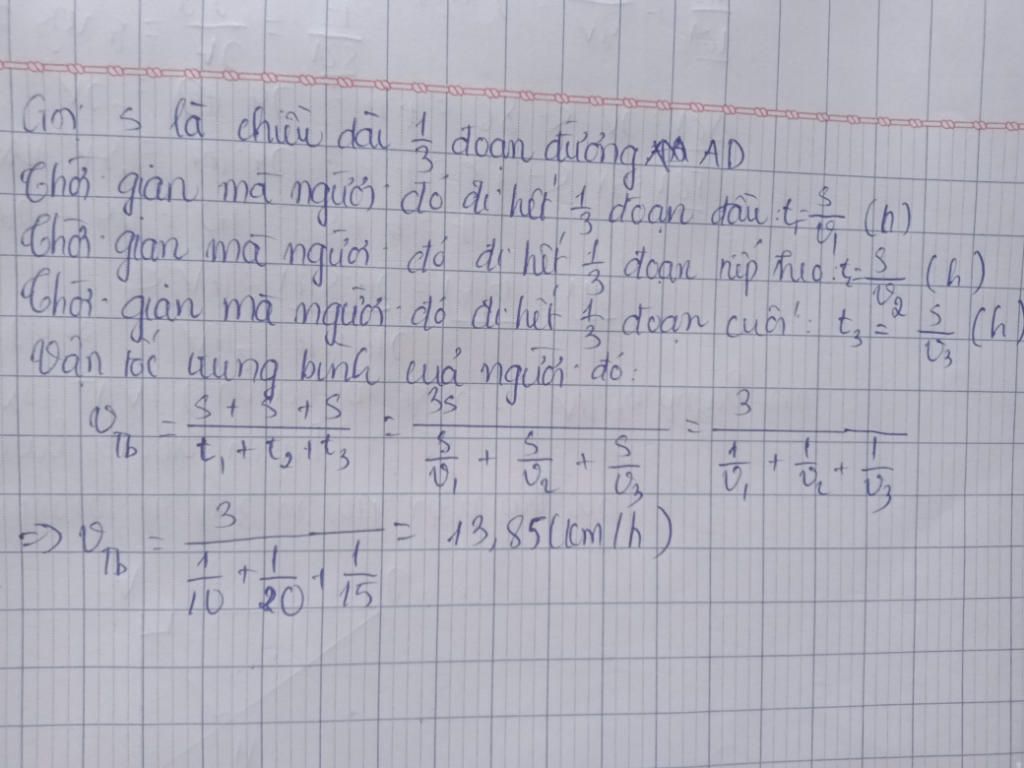 Gọi s là chiều dài 1/3 đoạn đường AD
Thời gian mà người đó đi hết 1/3 đoạn đầu: t₁ = s/v₁ (h)
Thời gian mà người đó đi hết 1/3 đoạn tiếp theo: t₂ = s/v₂ (h)
Thời gian mà người đó đi hết 1/3 đoạn cuối: t₃ = s/v₃ (h)
Vận tốc trung bình của người đó:
v_Tb = (s + s + s)/(t₁ + t₂ + t₃) = 3s/(s/v₁ + s/v₂ + s/v₃) = 3/(1/v₁ + 1/v₂ + 1/v₃)
=> v_Tb = 3/(1/10 + 1/20 + 1/15) = 13,85 (km/h)